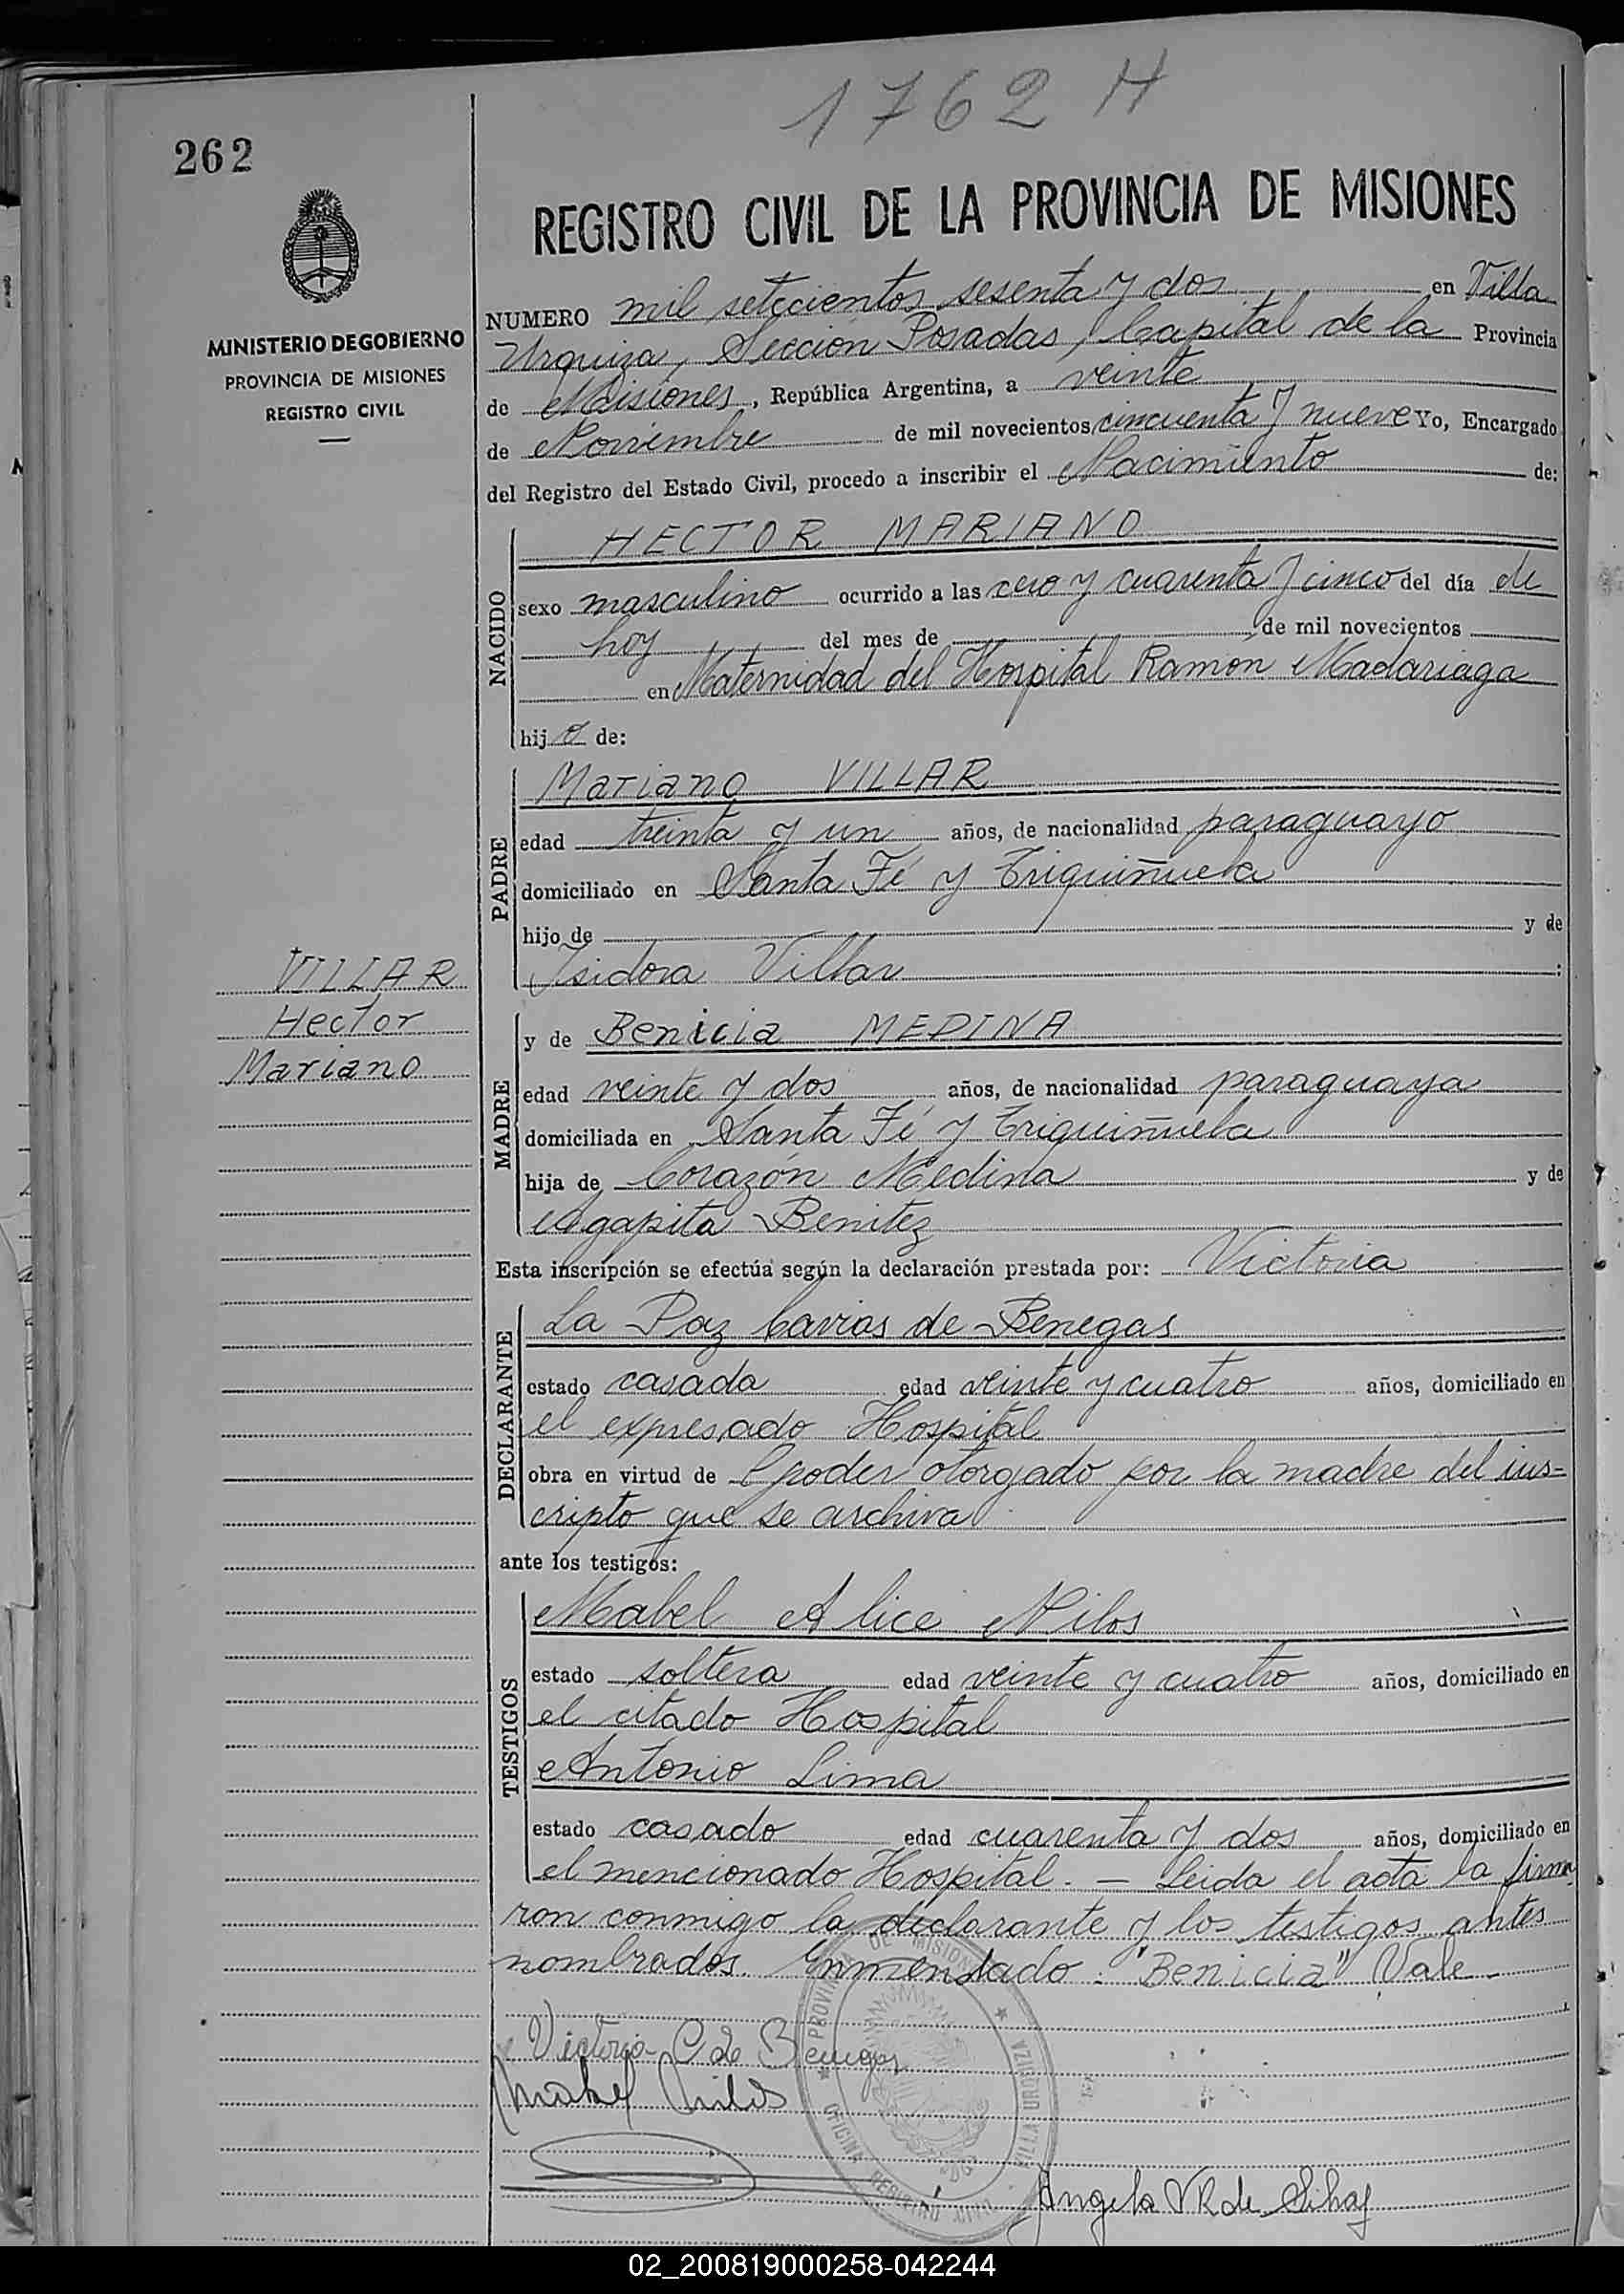 1762 H
262
MINISTERIO DE GOBIERNO
PROVINCIA DE MISIONES
REGISTRO CIVIL
REGISTRO CIVIL DE LA PROVINCIA DE MISIONES
NUMERO mil setecientos sesenta y dos en Villa
Urquiza, Sección Posadas, Capital de la Provincia
de Misiones, República Argentina, a veinte
de Noviembre de mil novecientos cincuenta y nueve Yo, Encargado
del Registro del Estado Civil, procedo a inscribir el Nacimiento de:
NACIDO
HECTOR MARIANO
sexo masculino ocurrido a las cero y cuarenta y cinco del día de
hoy del mes de de mil novecientos
en Maternidad del Hospital Ramon Madariaga
hijo de:
PADRE
Mariano VILLAR
edad treinta y un años, de nacionalidad paraguayo
domiciliado en Santa Fé y Triguiñuela
hijo de y de
Isidora Villar :
VILLAR
Hector
Mariano
MADRE
y de Benicia MEDINA
edad veinte y dos años, de nacionalidad paraguaya
domiciliada en Santa Fé y Triguiñuela
hija de Corazón Medina y de
Agapita Benitez
Esta inscripción se efectúa según la declaración prestada por: Victoria
DECLARANTE
La Paz Cavias de Benegas
estado casada edad veinte y cuatro años, domiciliado en
el expresado Hospital
obra en virtud de poder otorgado por la madre del ins=
cripto que se archiva
ante los testigos:
TESTIGOS
Mabel Alice Nilos
estado soltera edad veinte y cuatro años, domiciliado en
el citado Hospital
Antonio Lima
estado casado edad cuarenta y dos años, domiciliado en
el mencionado Hospital. — Leida el acta la firma
ron conmigo la declarante y los testigos antes
nombrados. Enmendado: "Benicia" Vale
Victoria C de Benegas
Mabel Nilos
PROVINCIA DE MISIONES
VILLA URQUIZA
OFICINA REGISTRO CIVIL
Angela V R de
02_200819000258-042244